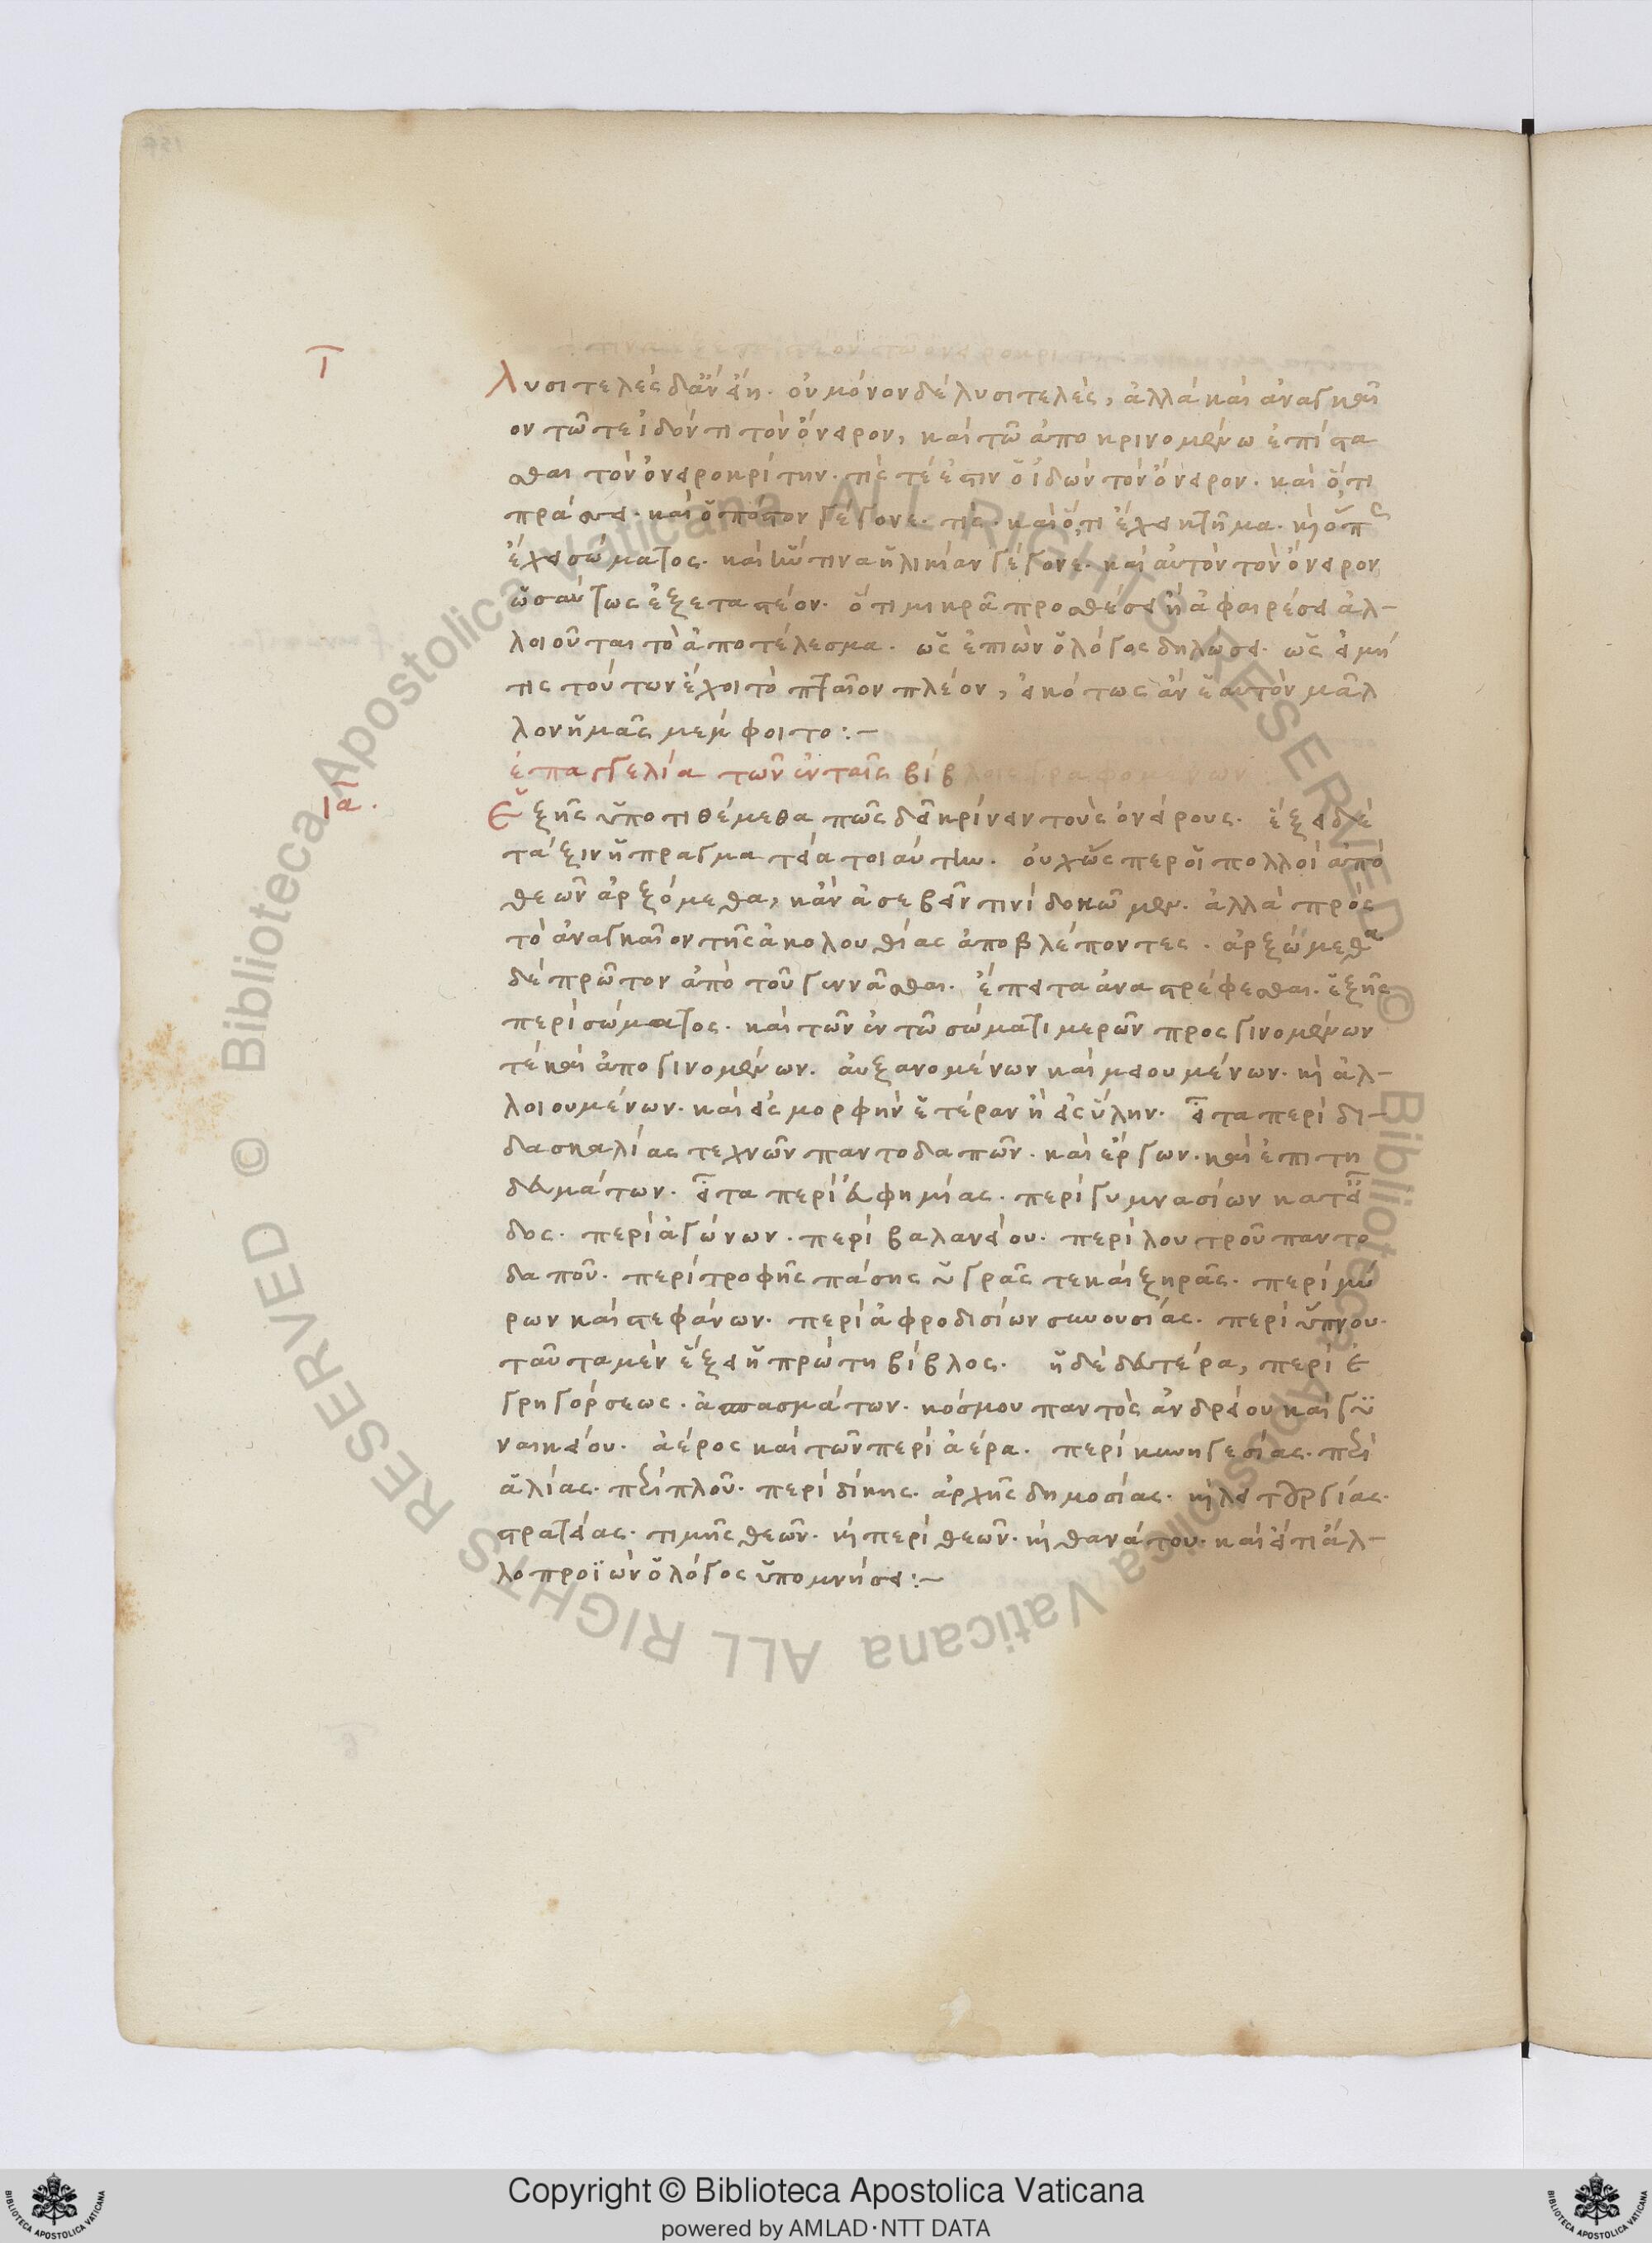 Ι
λυσιτελὲς δ' ἂν εἴη. οὐ μόνον δὲ λυσιτελὲς, ἀλλὰ καὶ ἀναγκαῖ
ον τῶ τε ἰδόντι τὸν ὄνειρον, καὶ τῶ ἀποκρινομένω ἐπίστα
σθαι τὸν ὀνειροκρίτην. τίς τέ ἐστιν ὁ ἰδὼν τὸν ὄνειρον. καὶ ὅ,τι
πράσσει. καὶ ὁποῖον γέγονε. τίς. καὶ ὅ,τι ἔχει κτῆμα. καὶ ὅπως
ἔχει σώματος. καὶ ἥντινα ἡλικίαν γέγονε. καὶ αὐτὸν τὸν ὄνειρον
ὡσαύτως ἐξεταστέον. ὅτι μικρᾶ προσθέσει ἢ ἀφαιρέσει ἀλ-
λοιοῦται τὸ ἀποτέλεσμα. ὡς ἐπιὼν ὁ λόγος δηλώσει. ὡς εἰ μή
τις τούτων ἔχοι τὸ πταῖον πλέον, εἰκότως ἂν ἑαυτὸν μᾶλ
λον ἢ ἡμᾶς μέμφοιτο:-
ἐπαγγελία τῶν ἐν ταῖς βίβλοις γραφομένων
ια.
Ἑξῆς ὑποτιθέμεθα πῶς δεῖ κρίνειν τοὺς ὀνείρους. ἕξει δὲ
τάξιν ἡ πραγματεία τοιαύτην. οὐχ ὥσπερ οἱ πολλοὶ ἀπὸ
θεῶν ἀρξόμεθα, κἂν ἀσεβεῖν τινὶ δοκῶμεν. ἀλλὰ πρὸς
τὸ ἀναγκαῖον τῆς ἀκολουθίας ἀποβλέποντες. ἀρξώμεθα
δὲ πρῶτον ἀπὸ τοῦ γεννᾶσθαι. ἔπειτα ἀναστρέφεσθαι. ἑξῆς
περὶ σώματος. καὶ τῶν ἐν τῶ σώματι μερῶν προσγινομένων
τὲ καὶ ἀπογινομένων. αὐξανομένων καὶ μειουμένων. καὶ ἀλ-
λοιουμένων. καὶ εἰς μορφὴν ἑτέραν ἢ εἰς ὕλην. εἶτα περὶ δι-
δασκαλίας τεχνῶν παντοδαπῶν. καὶ ἔργων. καὶ ἐπιτη
δευμάτων. εἶτα περὶ εὐφημίας. περὶ γυμνασίων κατ' εἶ
δος. περὶ ἀγώνων. περὶ βαλανείου. περὶ λουτροῦ παντο
δαποῦ. περὶ τροφῆς πάσης ὑγρᾶς τε καὶ ξηρᾶς. περὶ μύ
ρων καὶ στεφάνων. περὶ ἀφροδισίων συνουσίας. περὶ ὕπνου.
ταῦτα μὲν ἕξει ἡ πρώτη βίβλος. ἡ δὲ δευτέρα, περὶ ἐ
γρηγόρσεως. ἀσπασμάτων. κόσμου παντὸς ἀνδρείου καὶ γυ
ναικείου. ἀέρος καὶ τῶν περὶ ἀέρα. περὶ κυνηγεσίας. περὶ
ἁλίας. περὶ πλοῦ. περὶ δίκης. ἀρχῆς δημοσίας. καὶ λειτουργίας.
στρατείας. τιμῆς θεῶν. καὶ περὶ θεῶν. καὶ θανάτου. καὶ εἴ τι ἄλ-
λο προϊὼν ὁ λόγος ὑπομνήσει:-
© Biblioteca Apostolica Vaticana ALL RIGHTS RESERVED
© Biblioteca Apostolica Vaticana ALL RIGHTS RESERVED
Copyright © Biblioteca Apostolica Vaticana
powered by AMLAD·NTT DATA
BIBLIOTECA APOSTOLICA VATICANA
BIBLIOTECA APOSTOLICA VATICANA